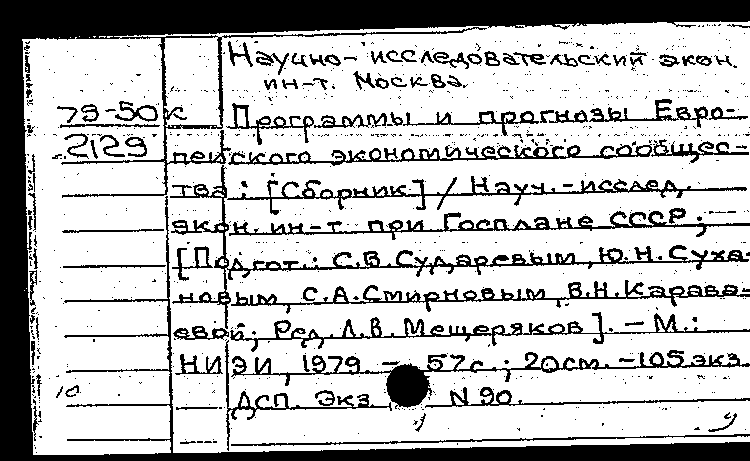 Научно-исследовательский экон.
ин-т. Москва.
79-50к Программы и прогнозы Евро-
2129 пейского экономического сообщес-
тва: [Сборник] / Науч.-исслед.
экон. ин-т при Госплане СССР;
[Подгот.: С.В.Сударевым, Ю.Н.Суха-
новым, С.А.Смирновым, В.Н.Карава-
евой; Ред. Л.В. Мещеряков]. - М.:
НИЭИ, 1979. - 57с.; 20см. -105экз.
10 ДСП. Экз N 90.